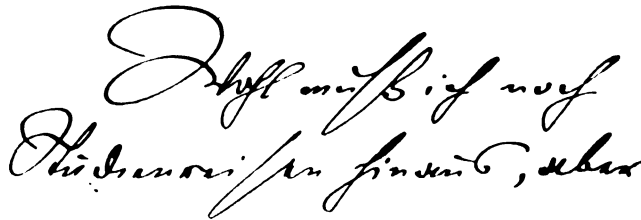 Wohl muß ich noch
Studienreisen hinaus, aber